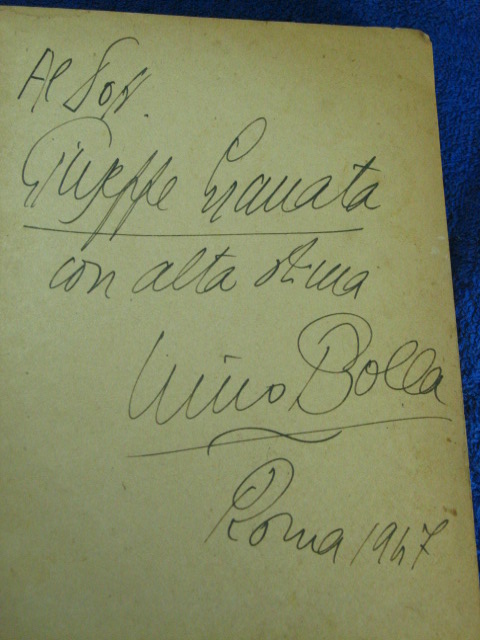 Al Dott.
Giuseppe Granata
con alta stima
Nino Bolla
Roma 1947